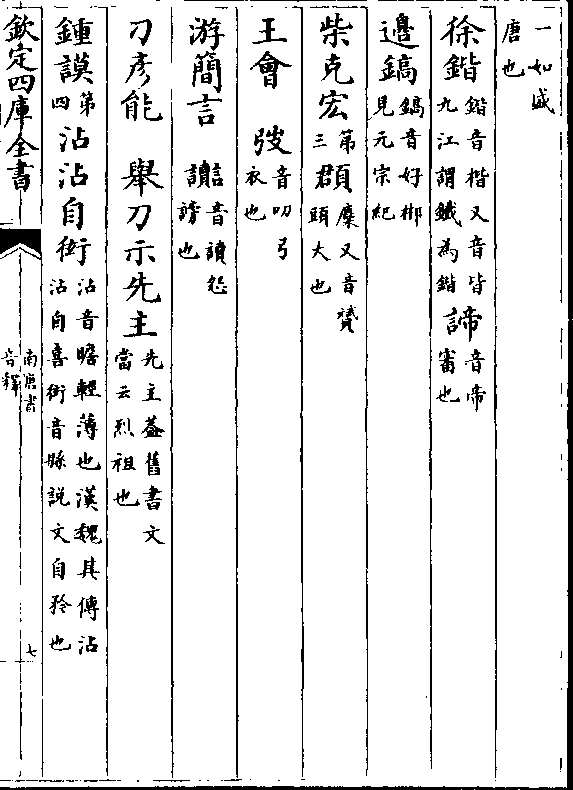 一如盛
唐也
徐鍇 鍇音楷又音皆
九江謂鐵為鍇 諦 音帝
審也
邊鎬 鎬音好郴
見元宗紀
柴克宏 第
三 頵 麋又音贇
頭大也
王會 弢 音叨弓
衣也
游簡言 讟 音讀怨
謗也
刁彥能 舉刀示先主 先主蓋舊書文
當云烈祖也
鍾謨 第
四 沾沾自衒 沾音瞻輕薄也漢魏其傳沾
沾自喜衒音縣說文自矜也
欽定四庫全書
南唐書
音釋
七